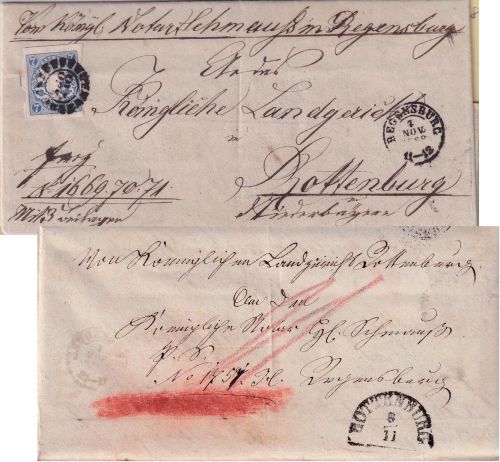 Vom Königl. Notar Schmauß in Regensburg
7
An das
Königliche Landgericht
in
Rottenburg
Niederbayern
REGENSBURG
7
NOV.
11-12
1669.70.71.
Von Königlichen Landgericht Rottenburg
an den
Königliche Notar H. Schmauß
Regensburg
ROTTENBURG
8
11